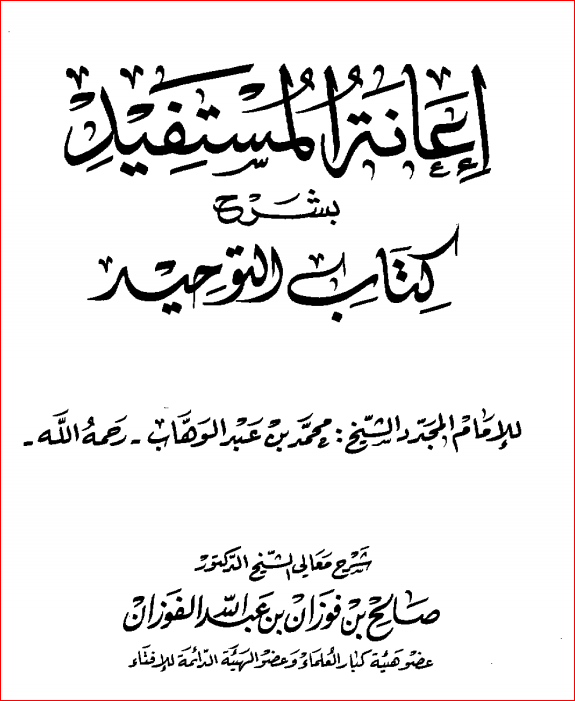 إِعَانَةُ الْمُسْتَفِيْدِ
بشرح
كِتَابِ التوحيد
للإمام المجدّد الشّيخ : محمّد بن عَبْد الوَهَّاب - رَحمهُ اللَّه -
شَرح مَعَالي الشّيخ الدّكتور
صَالِح بْن فَوزَان بن عَبد اللَّه الفَوزَان
عضو هيئة كبار العُلماء وَعضو الهيئة الدّائمة للإفتَاء